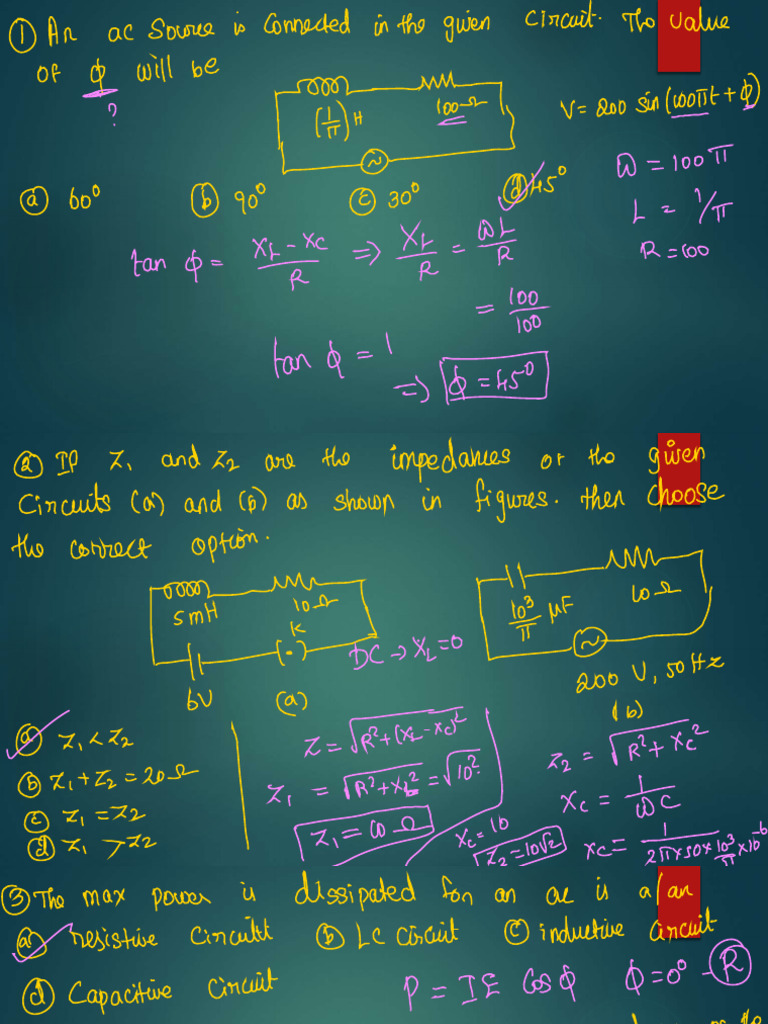 ① An ac Source is Connected in the given Circuit. The value
of φ will be
?
(1/π) H
100 Ω
V = 200 sin (100πt + φ)
ⓐ 60°
ⓑ 90°
ⓒ 30°
ⓓ 45°
ω = 100π
L = 1/π
R = 100
tan φ = XL - XC / R ⇒ XL / R = ωL / R
= 100 / 100
tan φ = 1
⇒ φ = 45°
② If Z1 and Z2 are the impedances or the given
Circuits (a) and (b) as shown in figures. then choose
the correct option.
5mH
10Ω
K
6V
(a)
DC → XL = 0
10³/π μF
10Ω
200 V, 50Hz
(b)
ⓐ Z1 < Z2
ⓑ Z1 + Z2 = 20Ω
ⓒ Z1 = Z2
ⓓ Z1 > Z2
Z = √R² + (XL - XC)²
Z1 = √R² + XL² = √10²
Z1 = 10 Ω
Z2 = √R² + XC²
XC = 1 / ωC
XC = 1 / 2π × 50 × 10³/π × 10⁻⁶
XC = 10
Z2 = 10√2
③ The max power is dissipated for an ac is a/an
ⓐ resistive Circuit ⓑ LC Circuit ⓒ inductive Circuit
ⓓ Capacitive Circuit
P = IE Cos φ φ = 0° - R